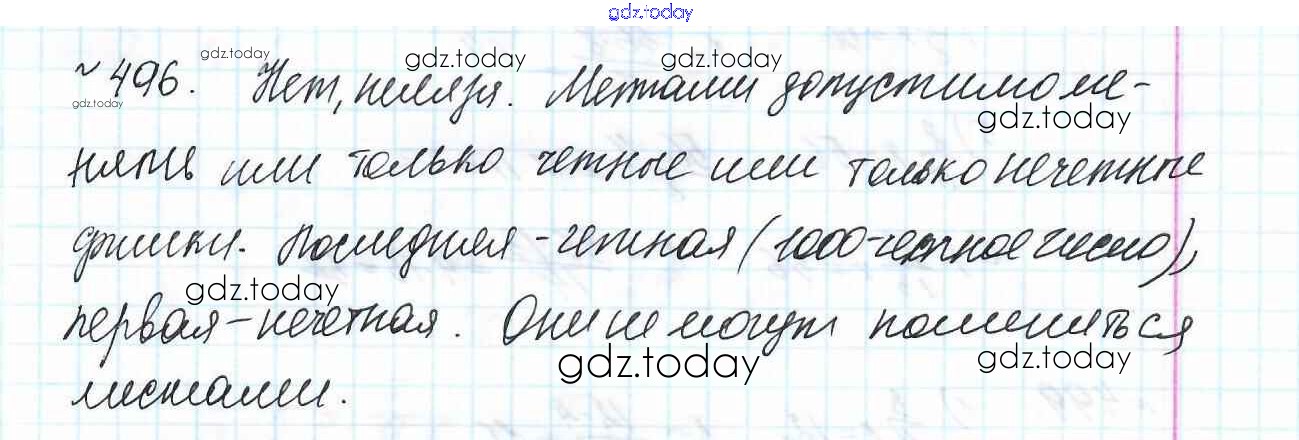 gdz.today
gdz.today gdz.today gdz.today
~ 496. Нет, нельзя. Местами допустимо ме-
gdz.today gdz.today
нять или только четные или только нечетные
фишки. Последняя - четная (1000-четное число),
gdz.today
первая – нечетная. Они не могут поменяться
gdz.today gdz.today
местами.
gdz.today gdz.today